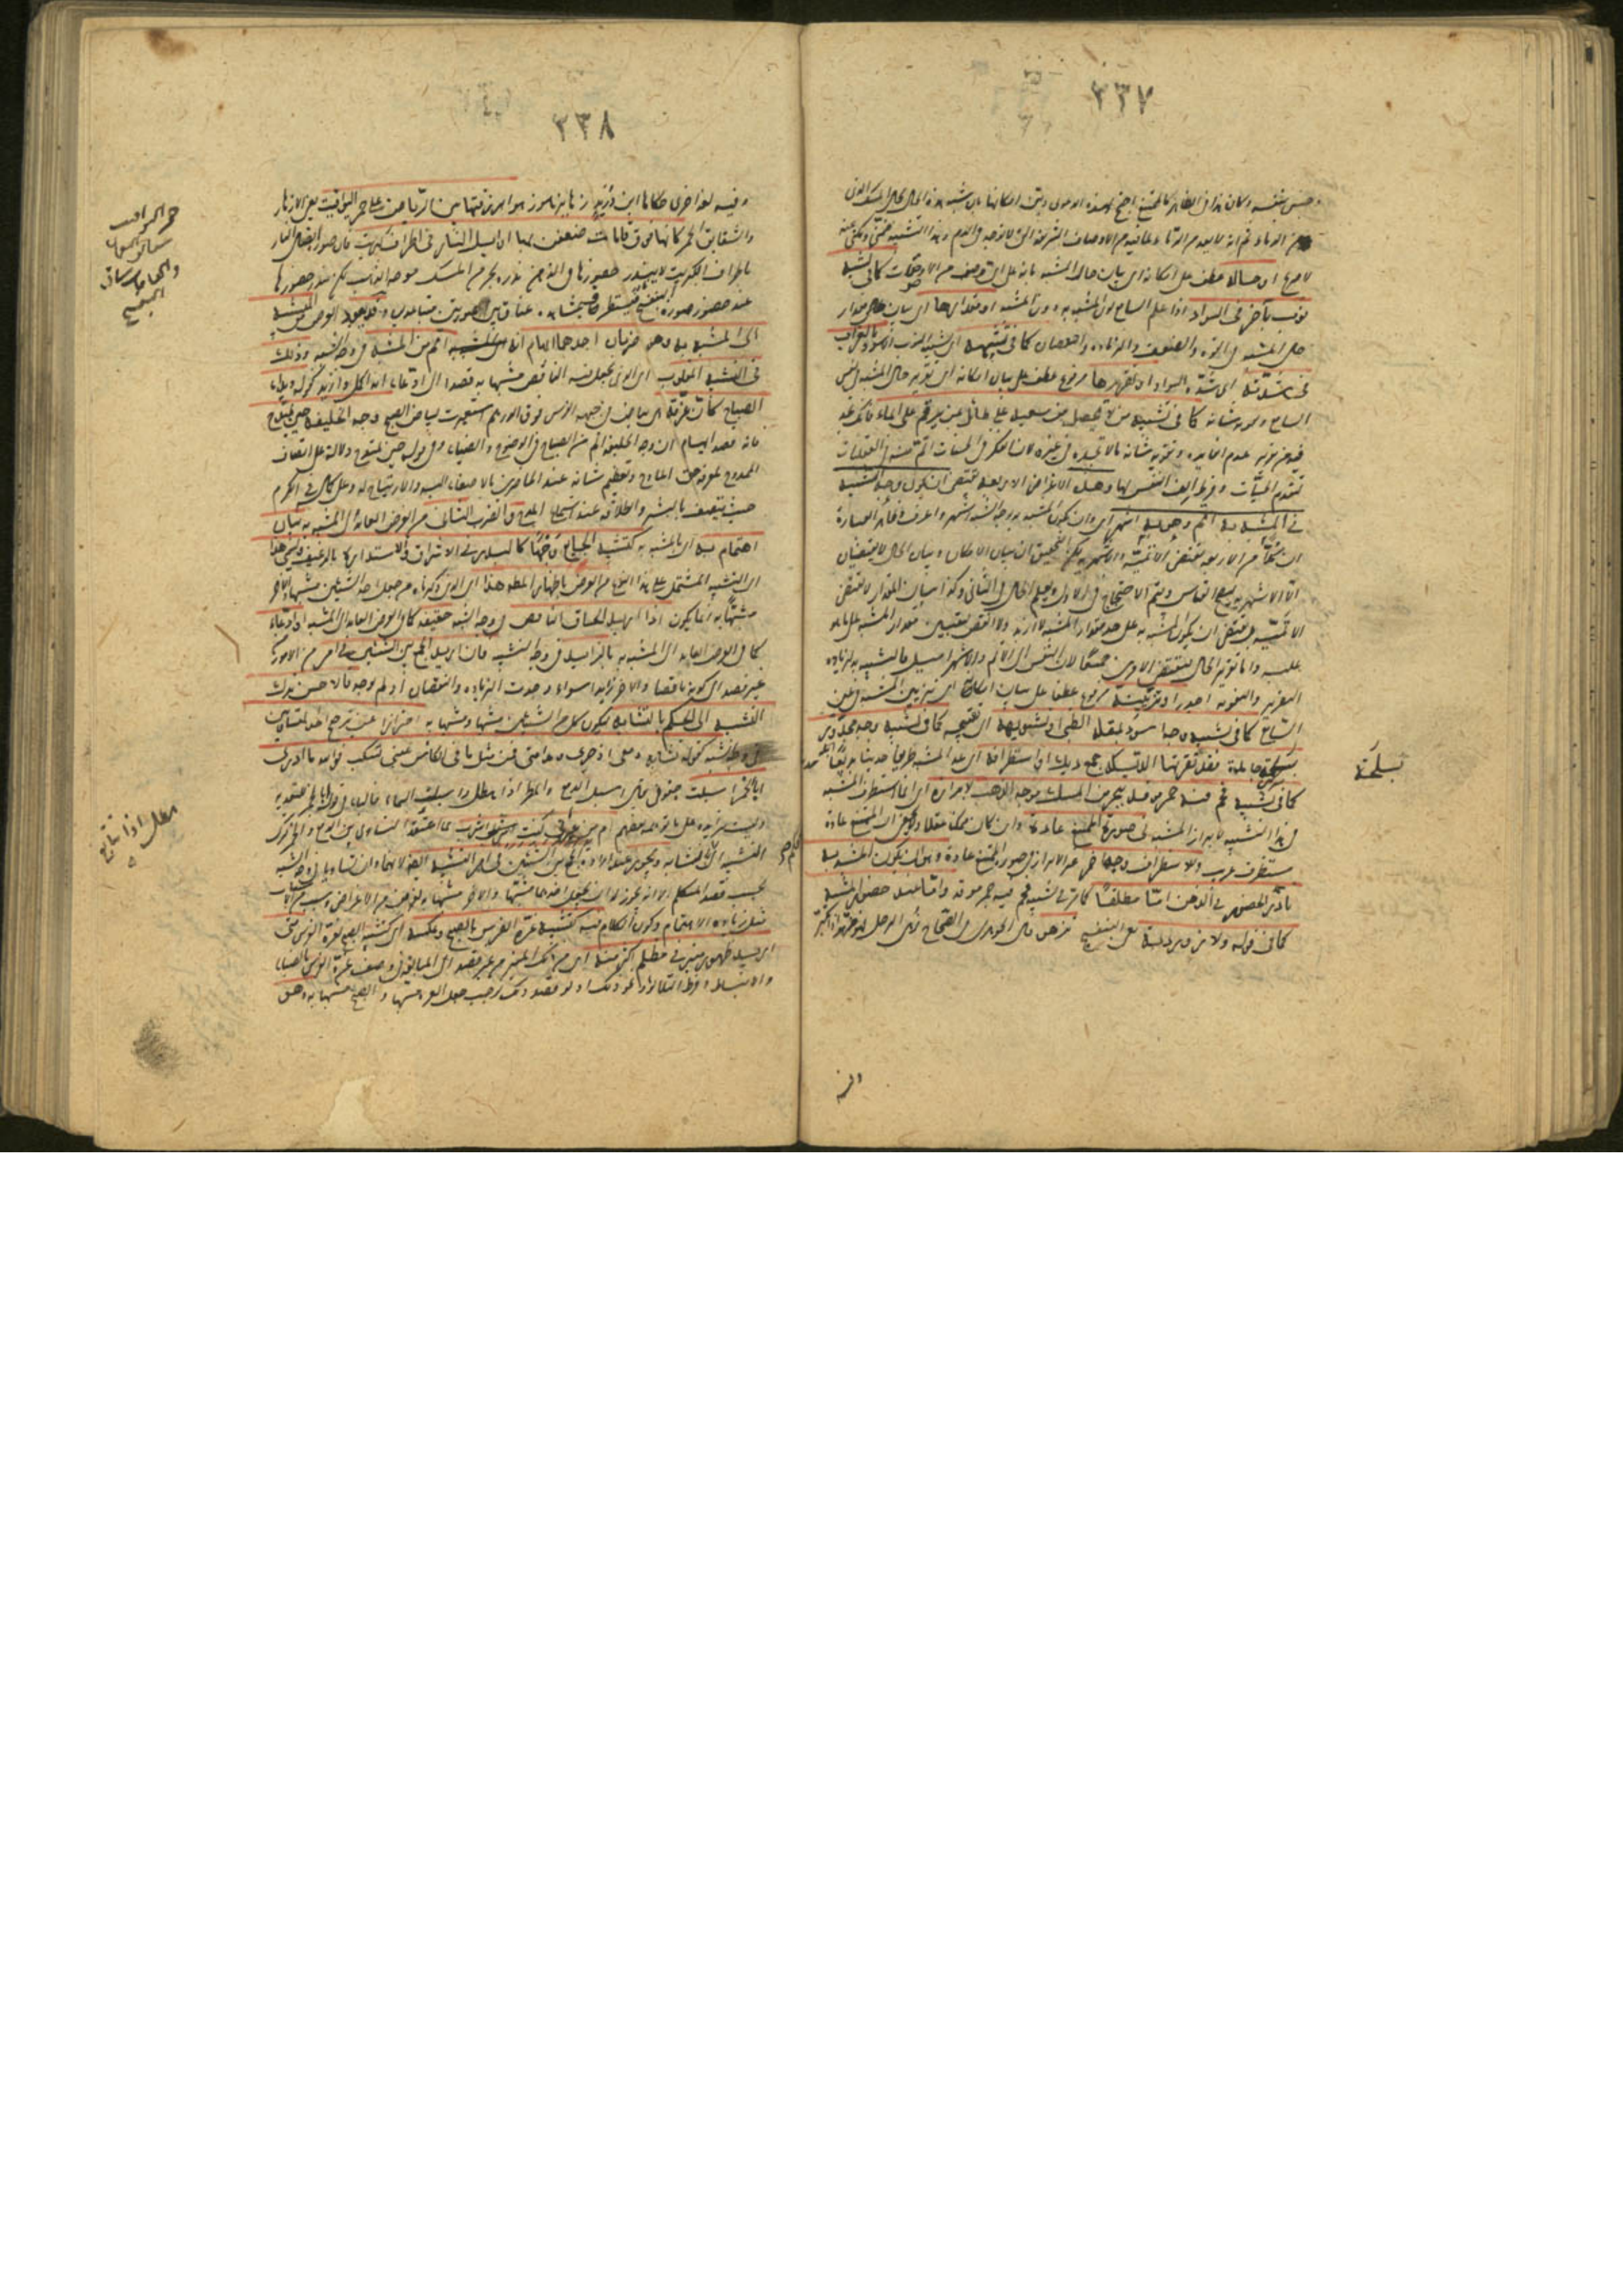 ٢٣٧
وجنس بنفسه وكان هذا في الظاهر كالممتنع احتج لهذه الدعوى وبين امكانها بان شبه هذه الحال بحال المسك الذي
هو من الدماء ثم انه لا يعد من الدماء لما فيه من الاوصاف الشريفة التي لا توجد في الدم وهذا التشبيه ضمني ومكني عنه
لا صريح او حاله عطف على امكانه اي بيان حال المشبه بانه على اي وصف من الاوصاف كما في تشبيه
ثوب بآخر في السواد اذا علم السامع لون المشبه به دون المشبه او مقدارها اي بيان مقدار
حال المشبه في القوة والضعف والزيادة والنقصان كما في تشبيهه اي تشبيه الثوب الاسود بالغراب
في شدته اي شدة السواد او تقريرها مرفوع عطف على بيان امكانه اي تقرير حال المشبه في نفس
السامع وتقوية شانه كما في تشبيه من لا يحصل من سعيه على طائل بمن يرقم على الماء فانك تجد
فيه من تقرير عدم الفايدة وتقوية شانه ما لا تجده في غيره لان الفكر في الحسيات اتم منه في العقليات
لتقدم الحسيات وفرط الف النفس بها وهذه الاغراض الاربعة تقتضي ان يكون وجه الشبه
في المشبه به اتم وهو به اشهر اي وان يكون المشبه به بوجه الشبه اشهر واعرف وظاهر العبارة
ان كلا من الاربعة تقتضي الاتمية والاشهرية لكن التحقيق ان بيان الامكان وبيان الحال لا يقتضيان
الا الاشهرية ليصح القياس ويتم الاحتجاج في الاول ويعلم الحال في الثاني وكذا بيان المقدار لا يقتضي
الاتمية بل يقتضي ان يكون المشبه به على حد مقدار المشبه لا ازيد ولا انقص ليتعين مقدار المشبه على ما هو
عليه واما تقرير الحال فيقتضي الامرين جميعا لان النفس الى الاتم والاشهر اميل فالتشبيه به لزيادة
التقرير والتقوية اجدر او تزيينه مرفوع عطفا على بيان امكانه اي تزيين المشبه في عين
السامع كما في تشبيه وجه اسود بمقلة الظبي او تشويهه اي تقبيحه كما في تشبيه وجه مجدور
بسلحة جامدة قد نقرتها الديكة جمع ديك او استطرافه اي عد المشبه طريفا حديثا بديعا
كما في تشبيه فحم فيه جمر موقد ببحر من المسك موجه الذهب لابرازه اي انما استطرف المشبه
في هذا التشبيه لابراز المشبه في صورة الممتنع عادة وان كان ممكنا عقلا ولا يخفى ان الممتنع عادة
مستطرف غريب وللاستطراف وجه آخر غير الابراز في صورة الممتنع عادة وهو ان يكون المشبه به
نادر الحضور في الذهن اما مطلقا كما مر في تشبيه فحم فيه جمر موقد واما عند حضور المشبه
كما في قوله ولازوردية يعني البنفسج تزهو قال الجوهري في الصحاح زهي الرجل فهو مزهو اي تكبر
بسلحة
وفيه
٢٣٨
وفيه لغة اخرى حكاها ابن دريد زها يزهو زهوا بزرقتها بين الرياض على حمر اليواقيت يعني الازهار
والشقايق الحمر كانها فوق قامات ضعفن بها اوايل النار في اطراف كبريت فان صورة اتصال النار
باطراف الكبريت لا يندر حضورها في الذهن ندرة بحر من المسك موجه الذهب لكن يندر حضورها
عند حضور صورة البنفسج فيستطرف لمشاهدة عناق بين صورتين متباعدتين وقد يعود الغرض من التشبيه
الى المشبه به وهو ضربان احدهما ايهام انه اتم من المشبه في وجه الشبه وذلك
في التشبيه المقلوب اي الذي يجعل فيه الناقص مشبها به قصدا الى ادعاء انه اكمل وازيد كقوله وبدا
الصباح كأن غرته هي بياض في جبهة الفرس فوق الدرهم استعيرت لبياض الصبح وجه الخليفة حين يمتدح
فانه قصد ايهام ان وجه الخليفة اتم من الصباح في الوضوح والضياء وفي قوله حين يمتدح دلالة على اتصاف
الممدوح بمعرفة حق المادح وتعظيم شانه عند الحاضرين بالاصغاء اليه والارتياح له وعلى كماله في الكرم
حيث يتصف بالبشر والطلاقة عند استماع المديح والضرب الثاني من الغرض العائد الى المشبه به بيان
اهتمام به اي بالمشبه به كتشبيه الجائع وجها كالبدر في الاشراق والاستدارة بالرغيف ويسمى هذا
اي التشبيه المشتمل على هذا النوع من الغرض باظهار المطلوب هذا اي الذي ذكرناه من جعل احد الشيئين مشبها والآخر
مشبها به انما يكون اذا اريد الحاق الناقص في وجه الشبه حقيقة كما في الغرض العائد الى المشبه او ادعاء
كما في الغرض العايد الى المشبه به بالزائد في وجه الشبه فان اريد الجمع بين الشيئين في امر من الامور من
غير قصد الى كون احدهما ناقصا والآخر زايدا سواء وجدت الزيادة والنقصان ام لم يوجد فالاحسن ترك
التشبيه الى الحكم بالتشابه ليكون كل من الشيئين مشبها ومشبها به احترازا عن ترجيح احد المتساويين
في وجه الشبه كقوله تشابه دمعي اذ جرى ومدامتي فمن مثل ما في الكاس عيني تسكب فوالله ما ادري
ابالخمر اسبلت جفوني يقال اسبل الدمع والمطر اذا هطل واسبلت السماء فالباء في قوله ابالخمر للتعدية
وليست بزايدة على ما توهمه بعضهم ام من عبرتي كنت اشرب لما اعتقد التساوي بين الدمع والخمر ترك
التشبيه الى التشابه ويجوز عند ارادة الجمع بين الشيئين في امر التشبيه ايضا لانهما وان تساويا في وجه الشبه
بحسب قصد المتكلم الا انه يجوز له ان يجعل احدهما مشبها والآخر مشبها به لغرض من الاغراض وسبب من الاسباب
مثل زيادة الاهتمام وكون الكلام فيه كتشبيه غرة الفرس بالصبح وعكسه اي تشبيه الصبح بغرة الفرس متى
اريد ظهور منير في مظلم اكثر منه اي من ذلك المنير من غير قصد الى المبالغة في وصف غرة الفرس بالضياء
والانبساط وفرط التلألؤ ونحو ذلك اذ لو قصد ذلك لوجب جعل الغرة مشبها والصبح مشبها به وهو
هطل اذا تتابع